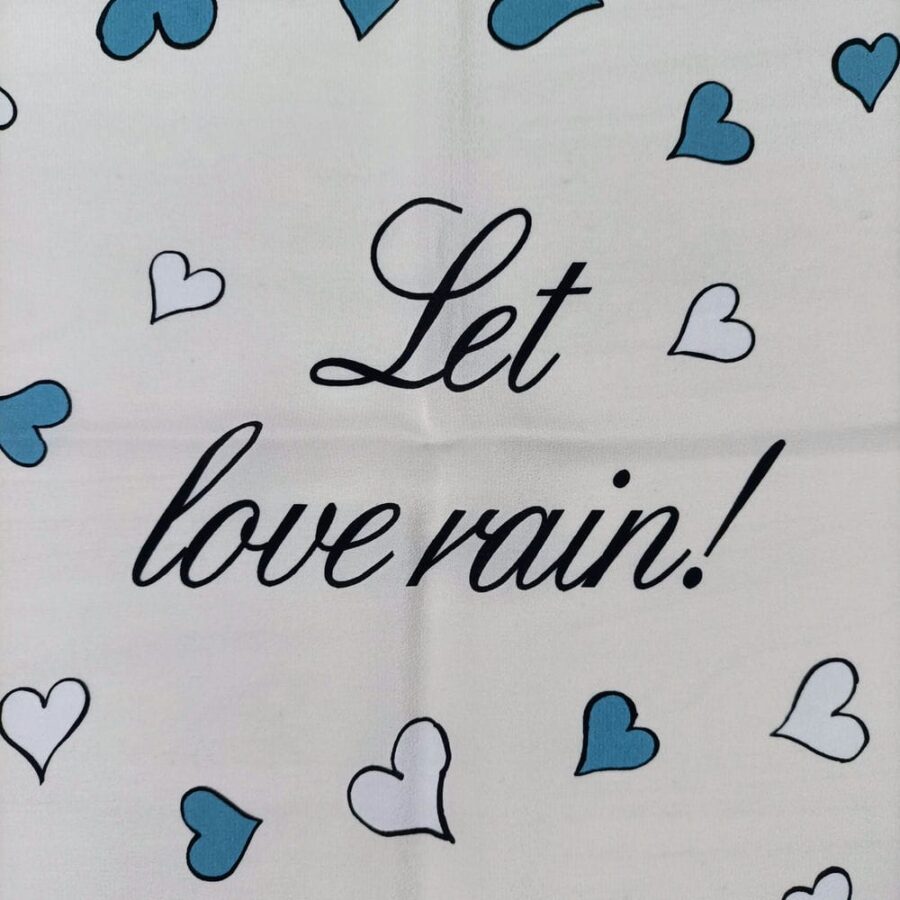 Let
love rain!